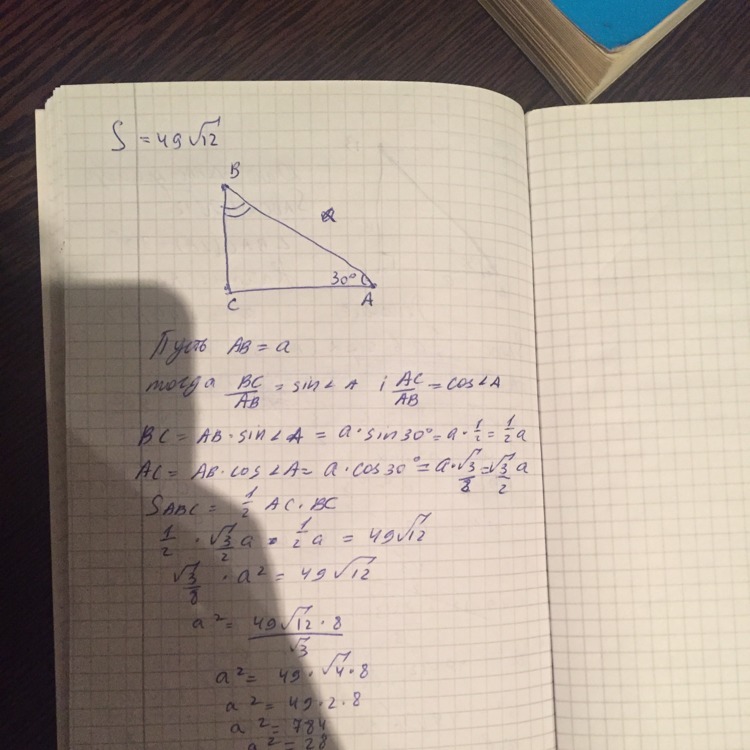 S = 49√12
B
30°
C
A
Пусть AB = a
тогда BC/AB = sin∠A ; AC/AB = cos∠A
BC = AB · sin∠A = a · sin30° = a · 1/2 = 1/2 a
AC = AB · cos∠A = a · cos30° = a · √3/2 = √3/2 a
SABC = 1/2 AC · BC
1/2 · √3/2 a · 1/2 a = 49√12
√3/8 · a² = 49√12
a² = 49√12 · 8/√3
a² = 49 · √4 · 8
a² = 49 · 2 · 8
a² = 784
a² = 28